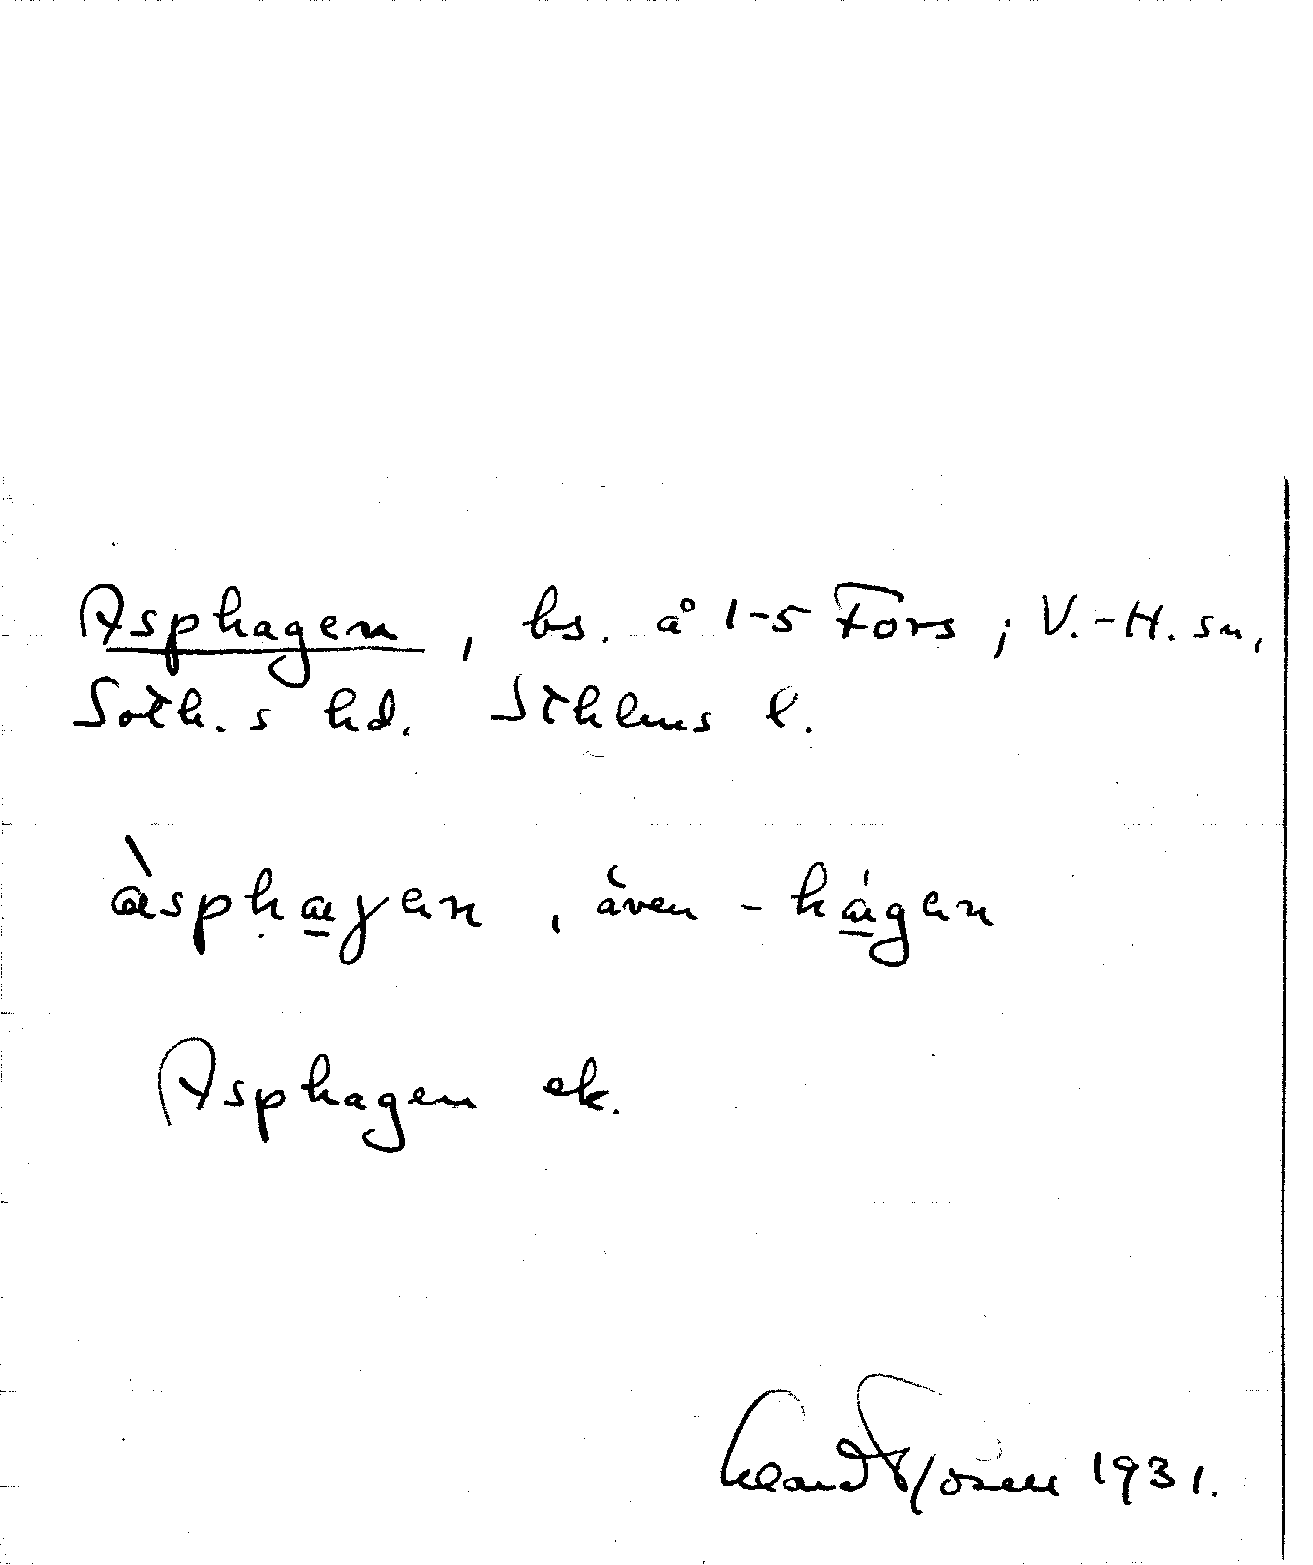 Asphagen, bs. å 1-5 Fors; V.-H. sn,
Soth.s hd. Sthlms l.
àsphagen, även -hágen
Asphagen ek.
1931.